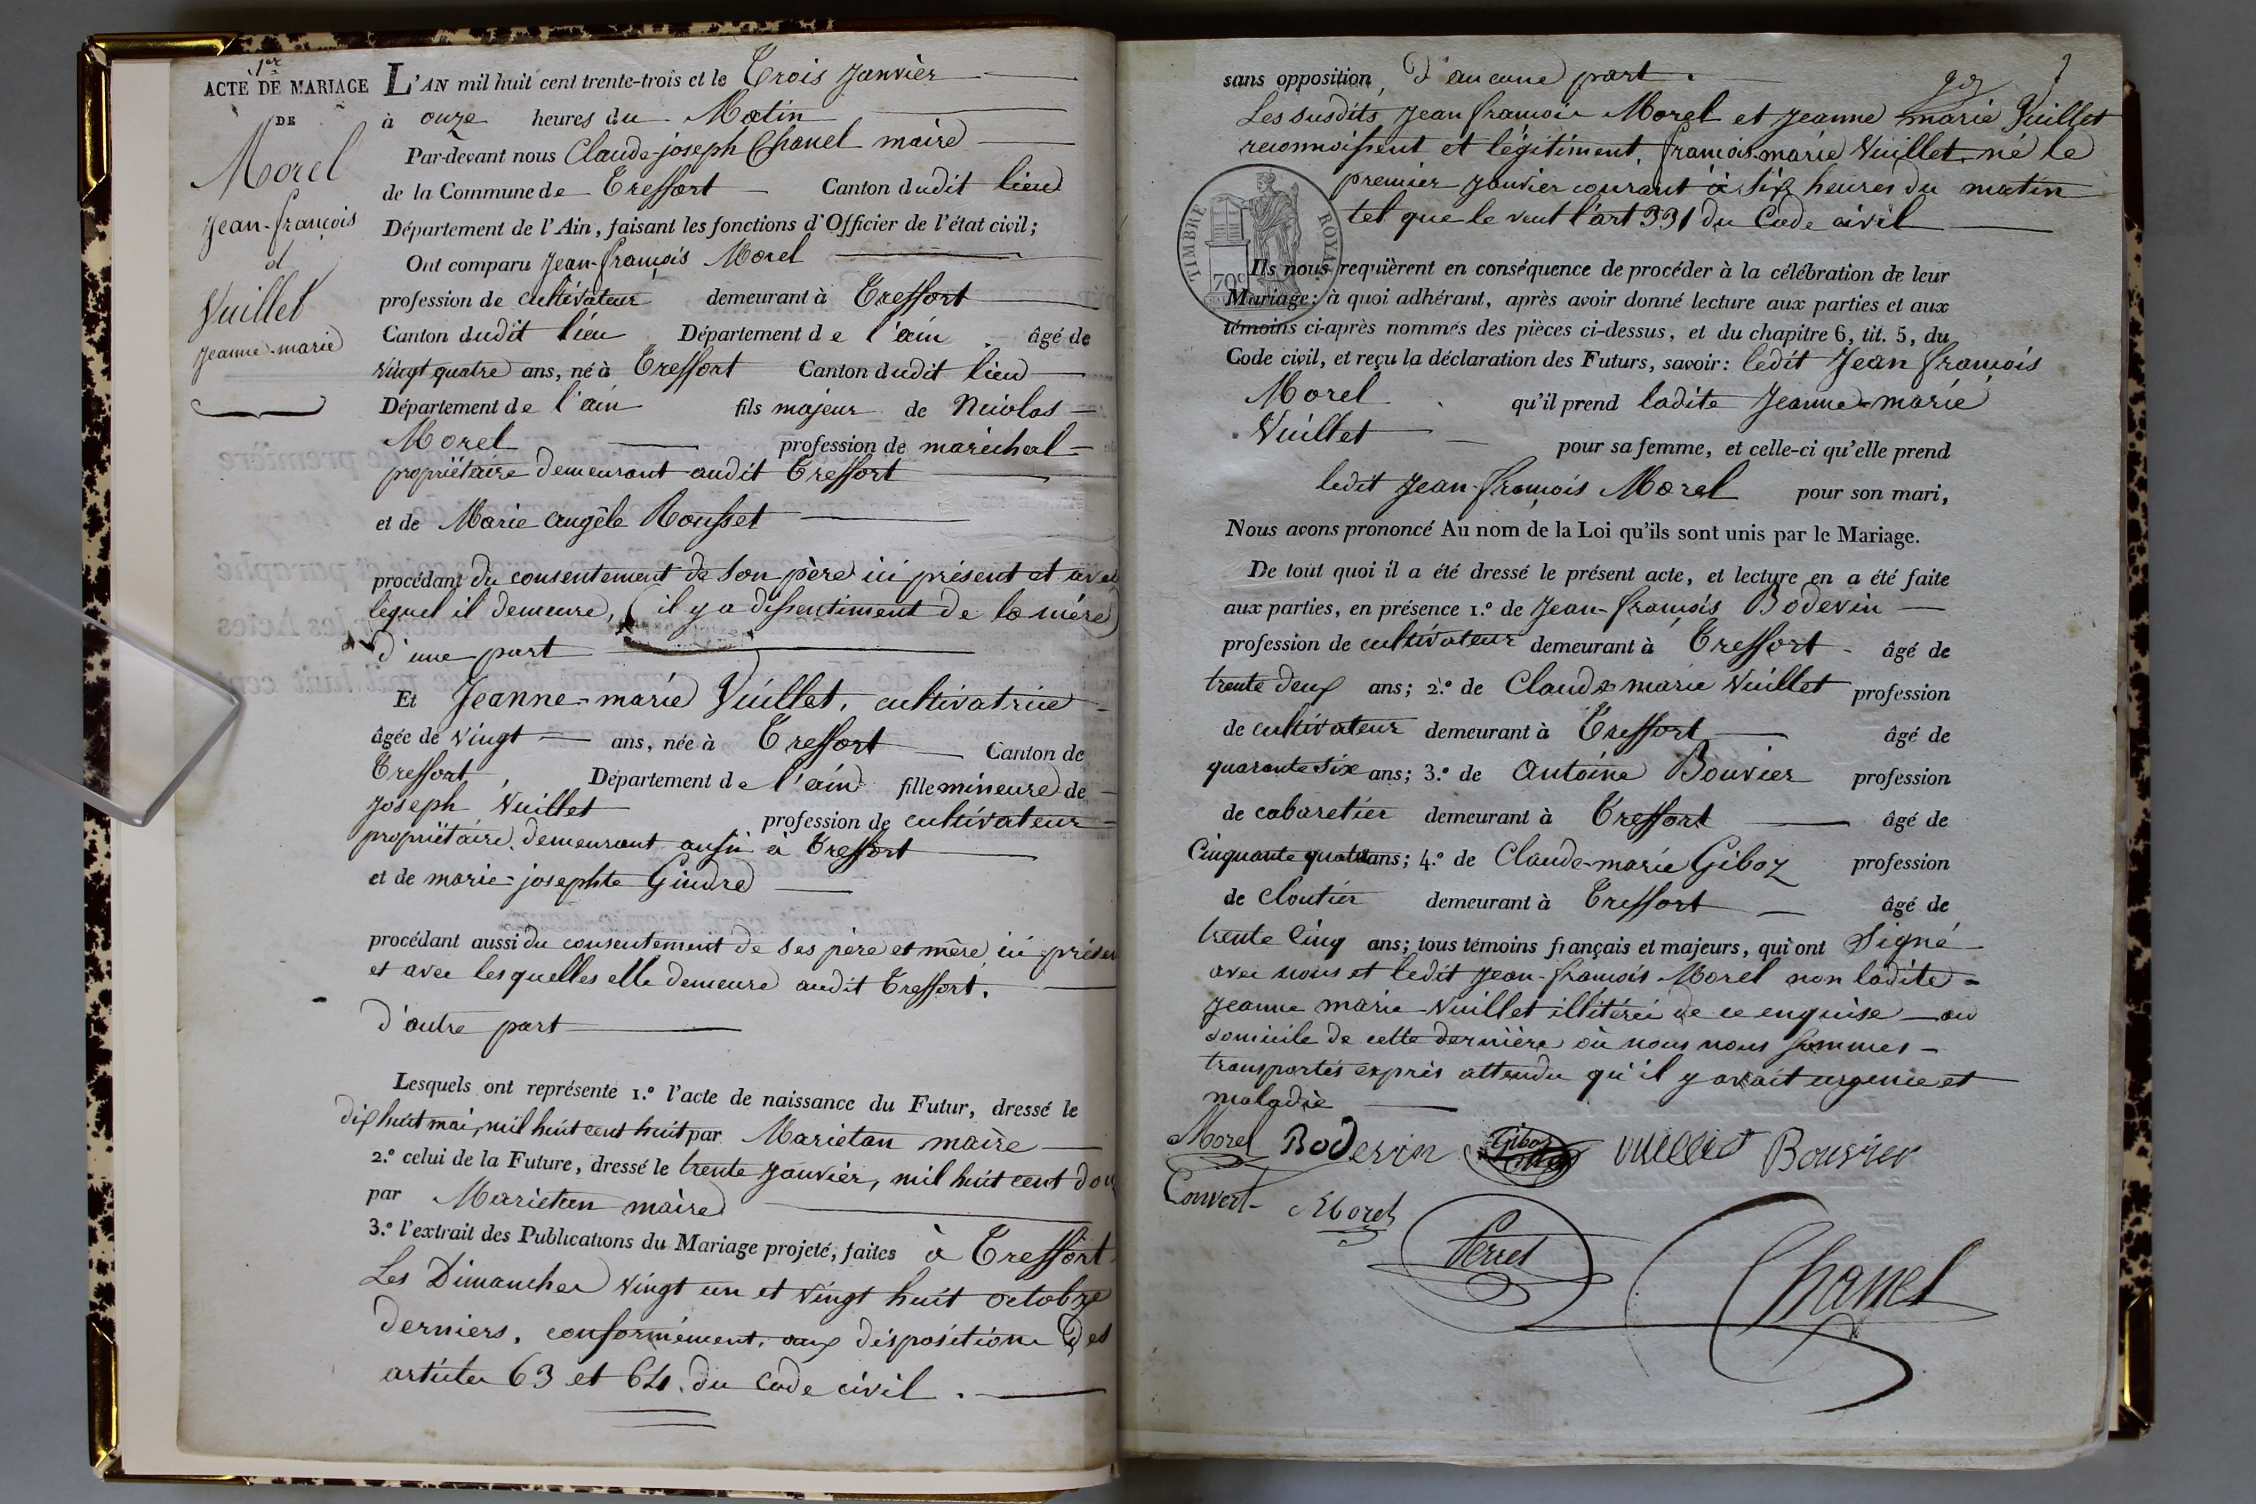 1er
ACTE DE MARIAGE
DE
Morel
Jean-françois
et
Vuillet
Jeanne-marie
L'AN mil huit cent trente-trois et le Trois Janvier
à onze heures du Matin
Par-devant nous Claude-joseph Chanel maire
de la Commune de Treffort Canton dudit lieu
Département de l'Ain, faisant les fonctions d'Officier de l'état civil;
Ont comparu Jean-françois Morel
profession de cultivateur demeurant à Treffort
Canton dudit lieu Département de l'ain âgé de
vingt quatre ans, né à Treffort Canton dudit lieu
Département de l'ain fils majeur de Nicolas
Morel profession de maréchal
propriétaire demeurant audit Treffort
et de Marie Angèle Rousset
procédant du consentement de son père ici présent et avec
lequel il demeure, (il y a dissentiment de la mère)
d'une part
Et Jeanne-marie Vuillet, cultivatrice
âgée de vingt ans, née à Treffort Canton de
Treffort, Département de l'ain fille mineure de
Joseph Vuillet profession de cultivateur
propriétaire demeurant aussi à Treffort
et de marie-josephte Gindre
procédant aussi du consentement de ses père et mère ici présen
et avec lesquelles elle demeure audit Treffort.
d'autre part
Lesquels ont représenté 1.º l'acte de naissance du Futur, dressé le
dix huit mai, mil huit cent huit par Marietan maire
2.º celui de la Future, dressé le trente Janvier, mil huit cent dou
par Marietan maire
3.º l'extrait des Publications du Mariage projeté, faites à Treffort
Les Dimanches vingt un et vingt huit octobre
derniers, conformément aux dispositions des
articles 63 et 64 du Code civil.
sans opposition, d'aucune part.
Les susdits Jean françois Morel et Jeanne marie Vuillet
reconnoissent et légitiment, françois-marie Vuillet né le
premier Janvier courant à six heures du matin
tel que le veut l'art 331 du Code civil
TIMBRE ROYAL
70c
Ils nous requièrent en conséquence de procéder à la célébration de leur
Mariage: à quoi adhérant, après avoir donné lecture aux parties et aux
témoins ci-après nommés des pièces ci-dessus, et du chapitre 6, tit. 5, du
Code civil, et reçu la déclaration des Futurs, savoir: ledit Jean françois
Morel qu'il prend ladite Jeanne-marie
Vuillet pour sa femme, et celle-ci qu'elle prend
ledit Jean-françois Morel pour son mari,
Nous avons prononcé Au nom de la Loi qu'ils sont unis par le Mariage.
De tout quoi il a été dressé le présent acte, et lecture en a été faite
aux parties, en présence 1.º de Jean-françois Bodevin
profession de cultivateur demeurant à Treffort âgé de
trente deux ans; 2.º de Claude marie Vuillet profession
de cultivateur demeurant à Treffort âgé de
quarante six ans; 3.º de Antoine Bouvier profession
de cabaretier demeurant à Treffort âgé de
Cinquante quatre ans; 4.º de Claude-marie Giboz profession
de cloutier demeurant à Treffort âgé de
trente Cinq ans; tous témoins français et majeurs, qui ont Signé
avec nous et ledit Jean-françois Morel non ladite
Jeanne marie Vuillet illitérée de ce enquise au
domicile de cette dernière où nous nous sommes
transportés exprès attendu qu'il y avait urgence et
maladie
Morel Bodevin Giboz vuillet Bouvier
Convert Morel
Perret
Chanel